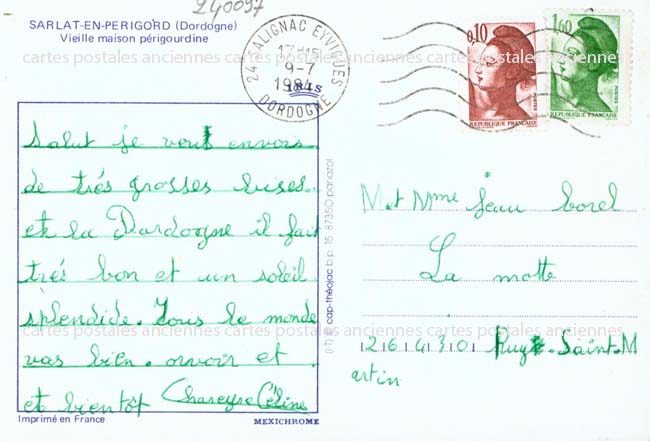 240097
SARLAT-EN-PERIGORD (Dordogne)
Vieille maison périgourdine
24 SALIGNAC EYVIGUES
17H15
9-7
DORDOGNE
IRIS
0,10
REPUBLIQUE FRANÇAISE
POSTES
1,60
REPUBLIQUE FRANÇAISE
POSTES
cartes postales anciennes cartes postales anciennes cartes postales anciennes
Salut je vous envois
de trés grosses bises.
et la Dardogne il fait
trés bon et un soleil
splendide. Tous le monde
vas bien. orvoir et
et bientôt Chareyre Céline
cap-théojac b.p. 15. 87350 panazol
M et Mme jean borel
La motte
cartes postales anciennes cartes postales anciennes cartes postales anciennes
26430 Puy Saint.M
artin
Imprimé en France
MEXICHROME